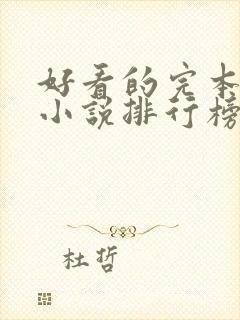 好看的完本
小说排行榜
杜哲